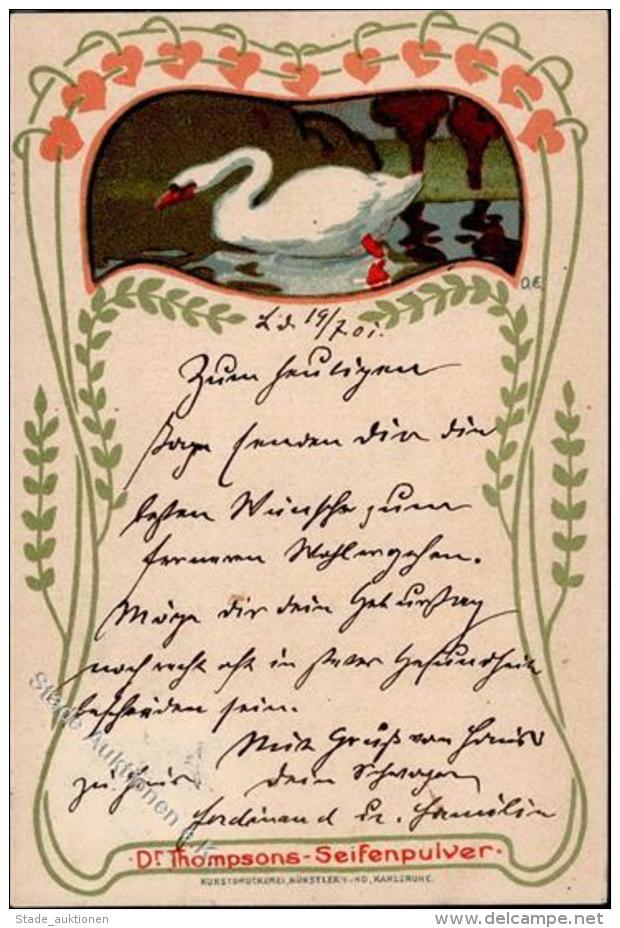 O.E.
L. d. 19/7.01.
Zum heutigen
Tage senden Dir die
besten Wünsche zum
ferneren Wohlergehen.
Möge dir dein Geburtstag
noch recht oft in steter Gesundheit
bescheiden sein.
Mit Gruß von Haus
zu Haus Dein Schwager
Ferdinand u. Familie
Stade Auktionen
Dr Thompsons-Seifenpulver
KUNSTDRUCKEREI, KÜNSTLERBUND, KARLSRUHE.
Stade_auktionen
www.delcampe.net